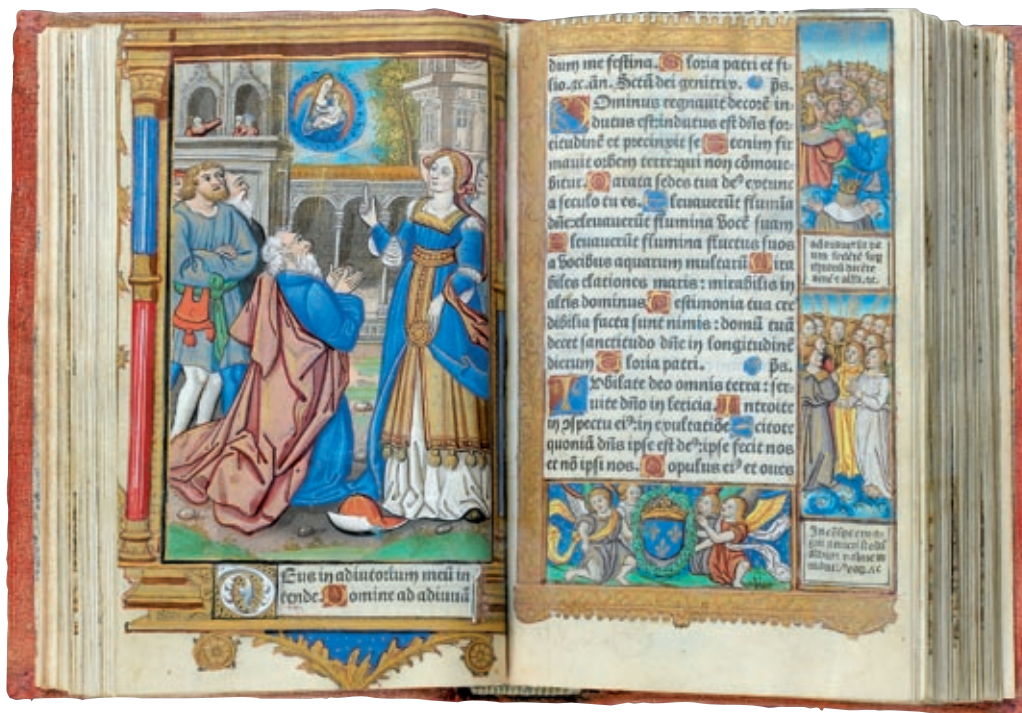 Eus in adiutorium meū in
tende. Domine ad adiuuā
dum me festina. Gloria patri et fi-
lio. ꝛc. añ. Sctā dei genitrix. p̄s.
Ominus regnauit decorē in-
dutus est: indutus est dñs for-
titudinē et precinxit se Etenim fir
mauit orbem terre: qui non cōmoue-
bitur. Parata sedes tua deꝰ extunc
a seculo tu es. Eleuauerūt flumina
dñe: eleuauerūt flumina vocē suam
Eleuauerūt flumina fluctus suos
a vocibus aquarum multarū Mira
biles elationes maris: mirabilis in
altis dominus. Testimonia tua cre
dibilia facta sunt nimis: domū tuā
decet sanctitudo dñe in longitudinē
dierum Gloria patri. p̄s.
Iubilate deo omnis terra: ser-
uite dño in leticia. Introite
in ꝯspectu eiꝰ: in exultatiōe Scitote
quoniā dñs ipse est deꝰ: ipse fecit nos
et nō ipsi nos. Populus eiꝰ et oues